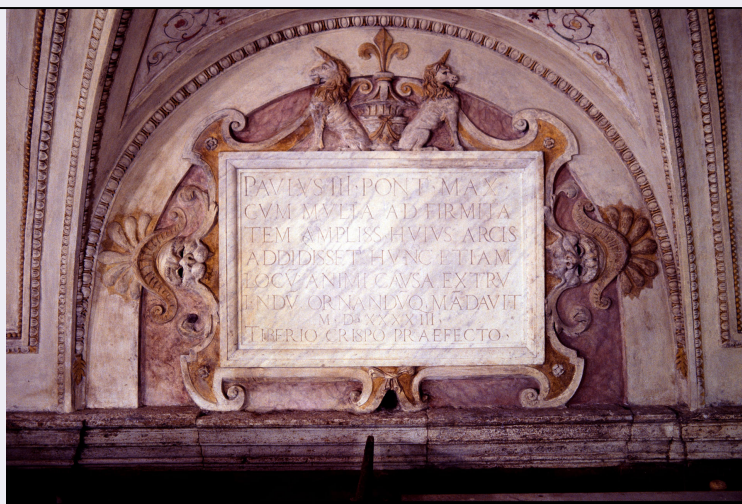 PAVLVS·III·PONT·MAX·
CVM MVLTA AD FIRMITA
TEM AMPLISS·HVIVS ARCIS
ADDIDISSET HVNC ETIAM
LOCV ANIMI CAVSA EXTRV
ENDV ORNANDVQ MADAVIT
M·D·XXXXIII·
TIBERIO CRISPO PRAEFECTO·